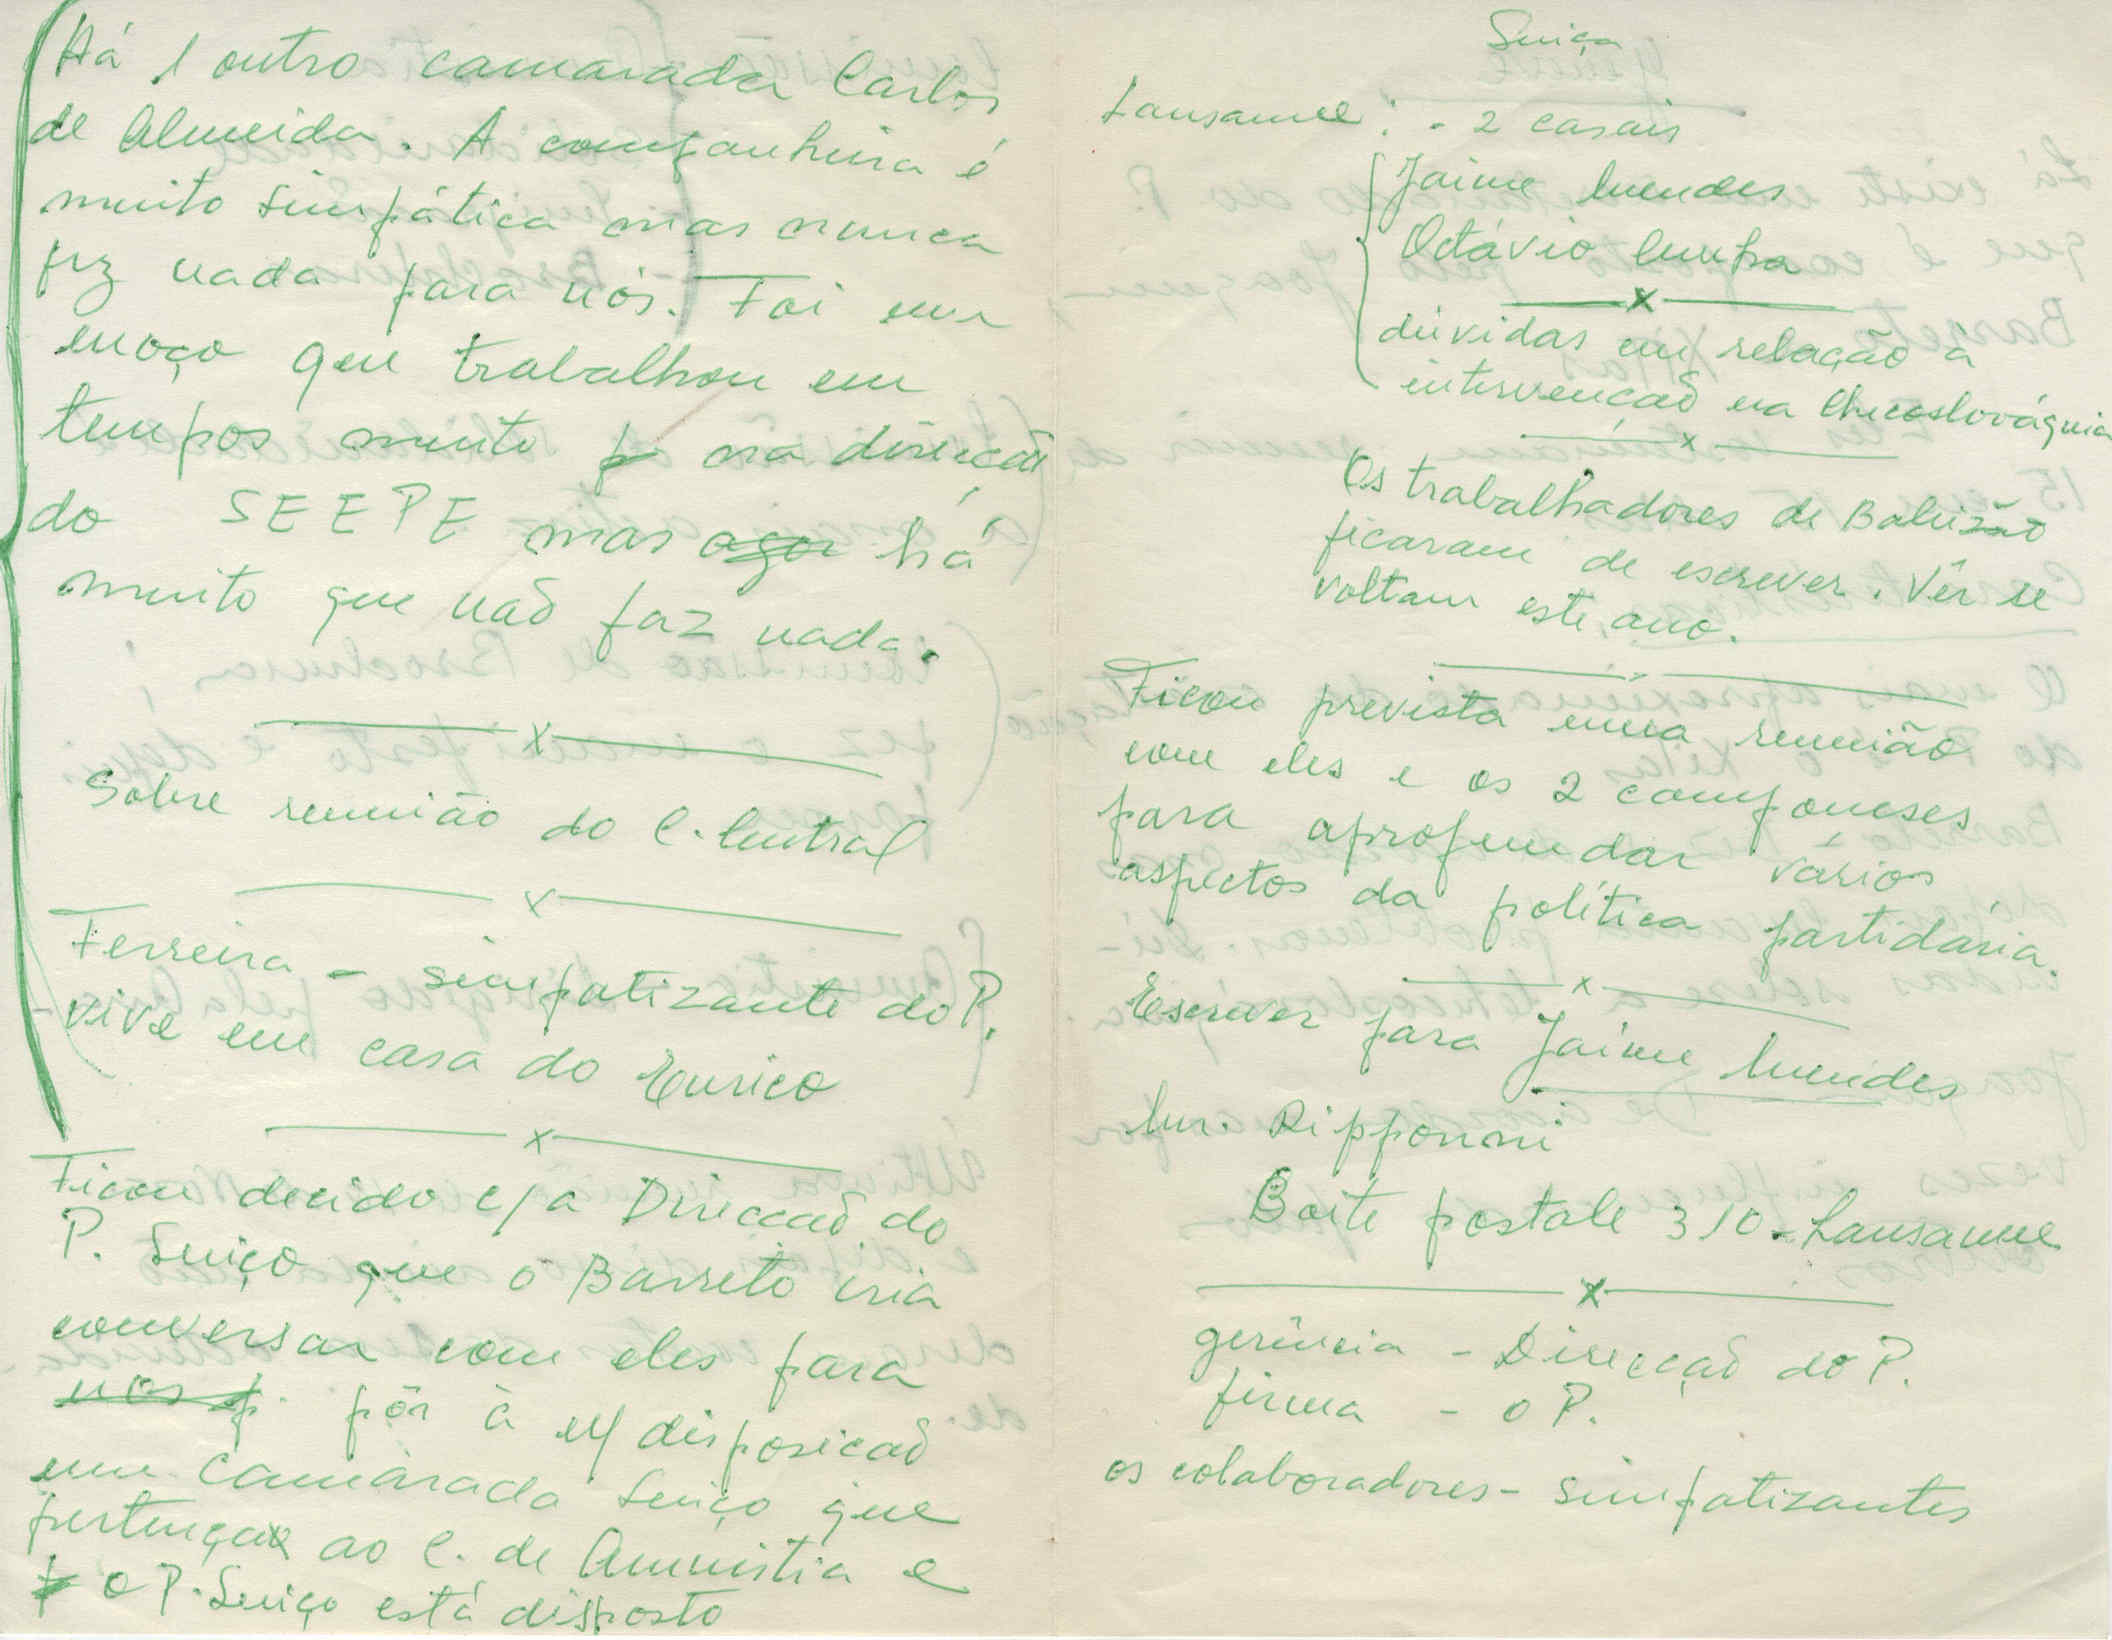 Há 1 outro camarada Carlos
de Almeida. A companheira é
muito simpática mas nunca
fez nada para nós. Foi um
moço que trabalhou em
tempos muito p na direcção
do SEEPE mas agor há
muito que não faz nada.
x
Sobre reunião do C. Central
x
Ferreira - simpatizante do P.
- vive em casa do Eurico
x
Ficou decido c/ a Direcção do
P. Suiço que o Barreto iria
conversar com eles para
nos p. pôr à n/ disposicão
um camarada Suiço que
pertença ao C. de Amnistia e
o P. Suiço está disposto
Suiça
Lausanne: - 2 casais
Jaime Mendes
Octávio
x
dúvidas em relação a
intervenção na Checoslováquia
x
Os trabalhadores de Baleizão
ficaram de escrever. Vêr se
voltam este ano.
Ficou prevista uma reunião
com eles e os 2 camponeses
para aprofundar vários
aspectos da política partidária.
x
Escrever para Jaime Mendes
Mur. Ripponni
Boite postale 310 - Lausanne
x
gerência - Direcção do P.
firma - o P.
os colaboradores - simpatizantes